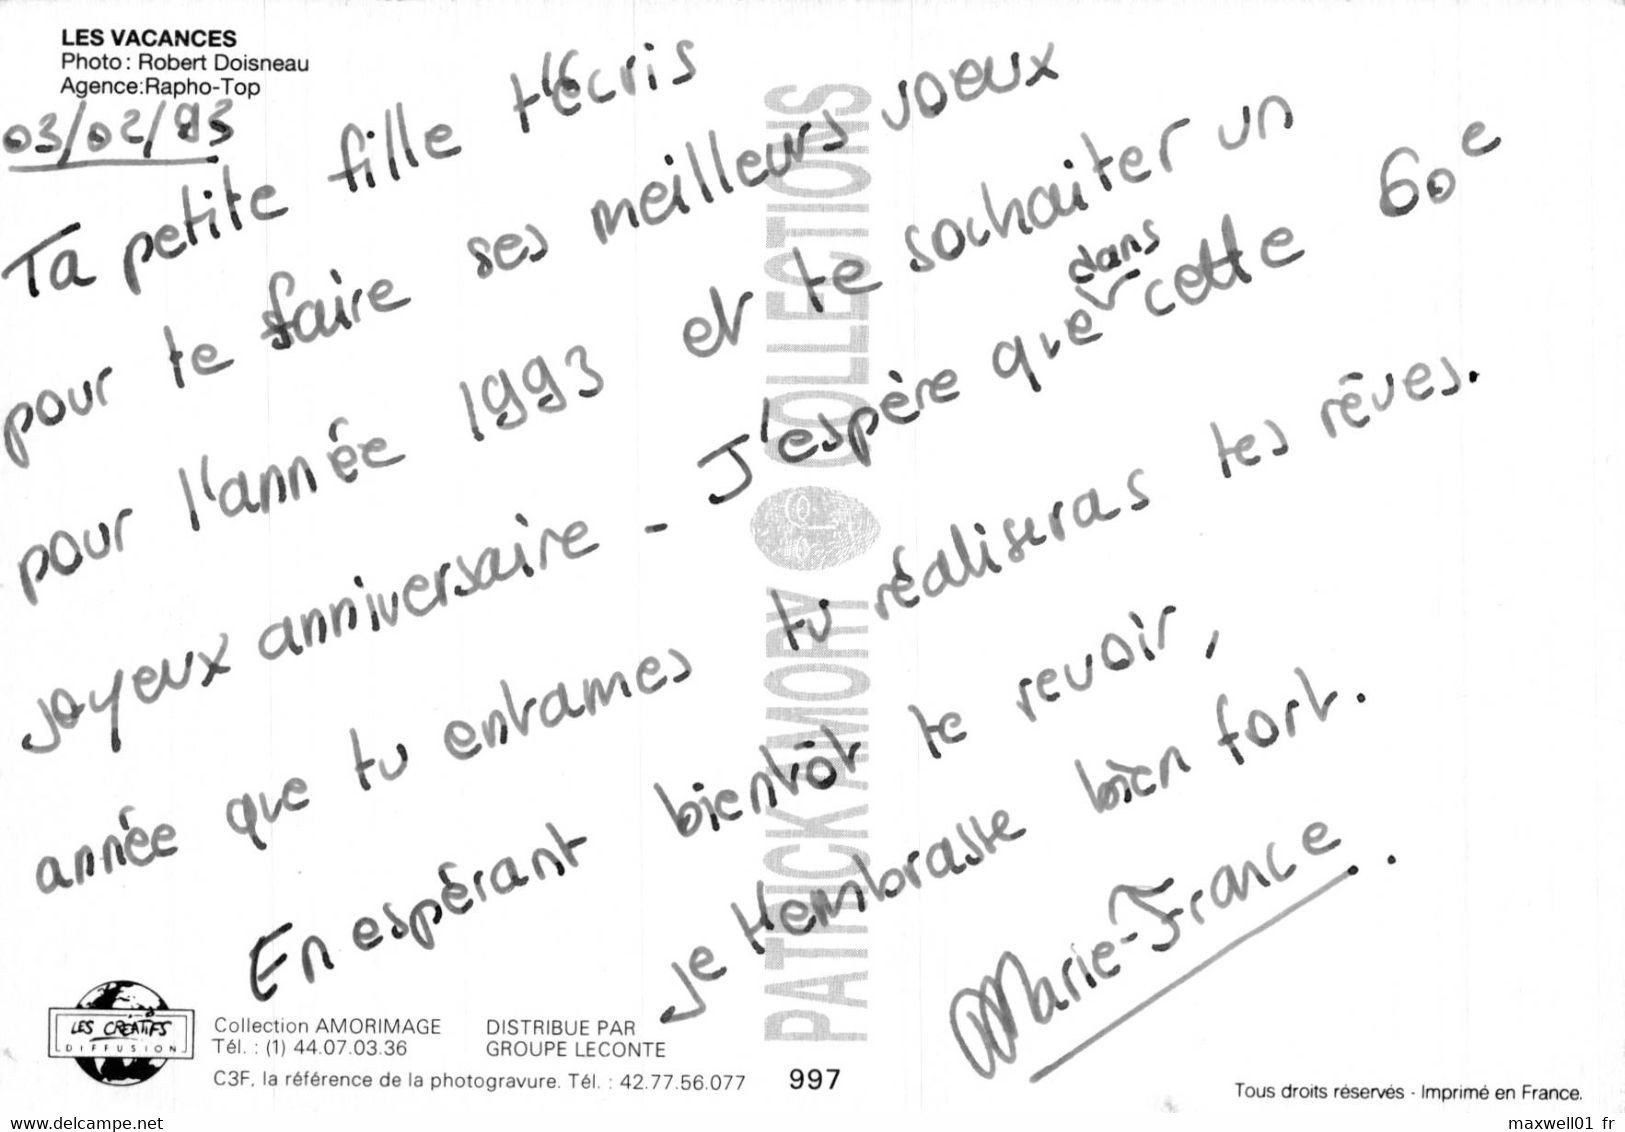 LES VACANCES
Photo: Robert Doisneau
Agence: Rapho-Top
03/02/93
Ta petite fille t'écris
pour te faire ses meilleurs voeux
pour l'année 1993 et te souhaiter un
joyeux anniversaire - J'espère que dans cette 60e
année que tu entames tu réaliseras tes rêves.
En espérant bientôt te revoir,
Je t'embrasse bien fort.
Marie-France
PATRICK AMORY COLLECTIONS
LES CRÉATIFS
DIFFUSION
Collection AMORIMAGE
Tél. : (1) 44.07.03.36
DISTRIBUE PAR
GROUPE LECONTE
C3F, la référence de la photogravure. Tél. : 42.77.56.077
997
Tous droits réservés - Imprimé en France.
maxwell01 fr